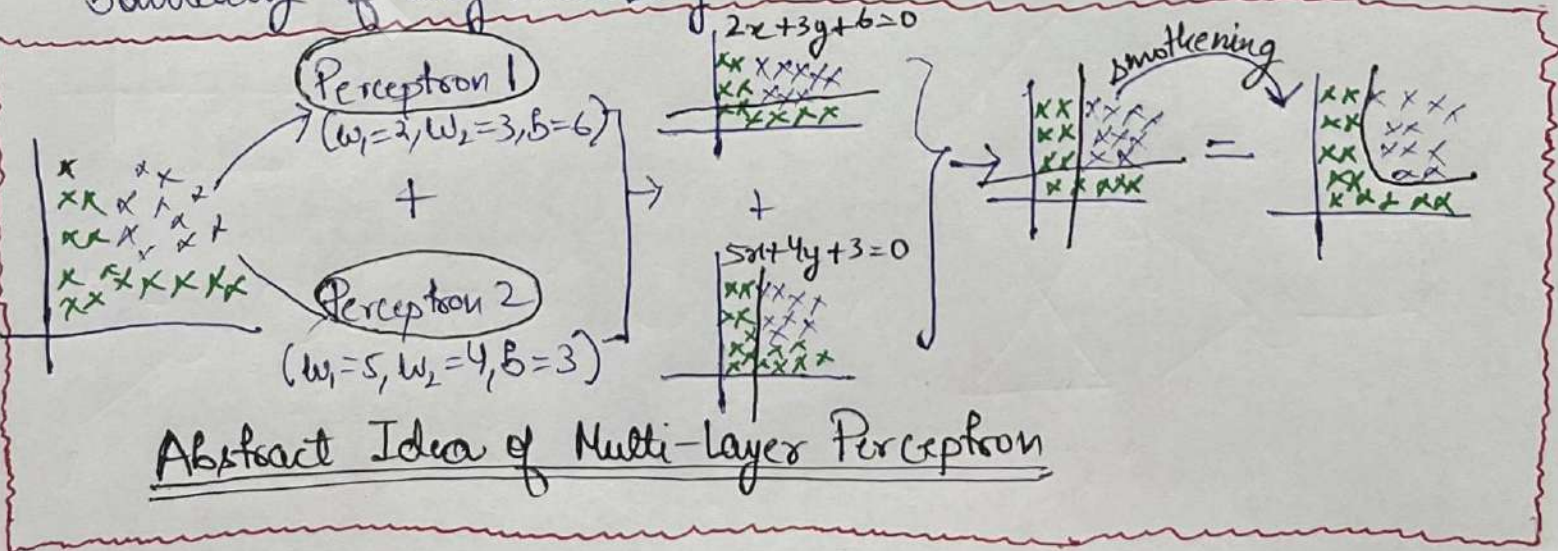 Perceptron 1
(W₁=2, W₂=3, B=6)
+
Perceptron 2
(W₁=5, W₂=4, B=3)
2x+3y+6=0
+
5x+4y+3=0
smothening
=
Abstract Idea of Multi-Layer Perceptron